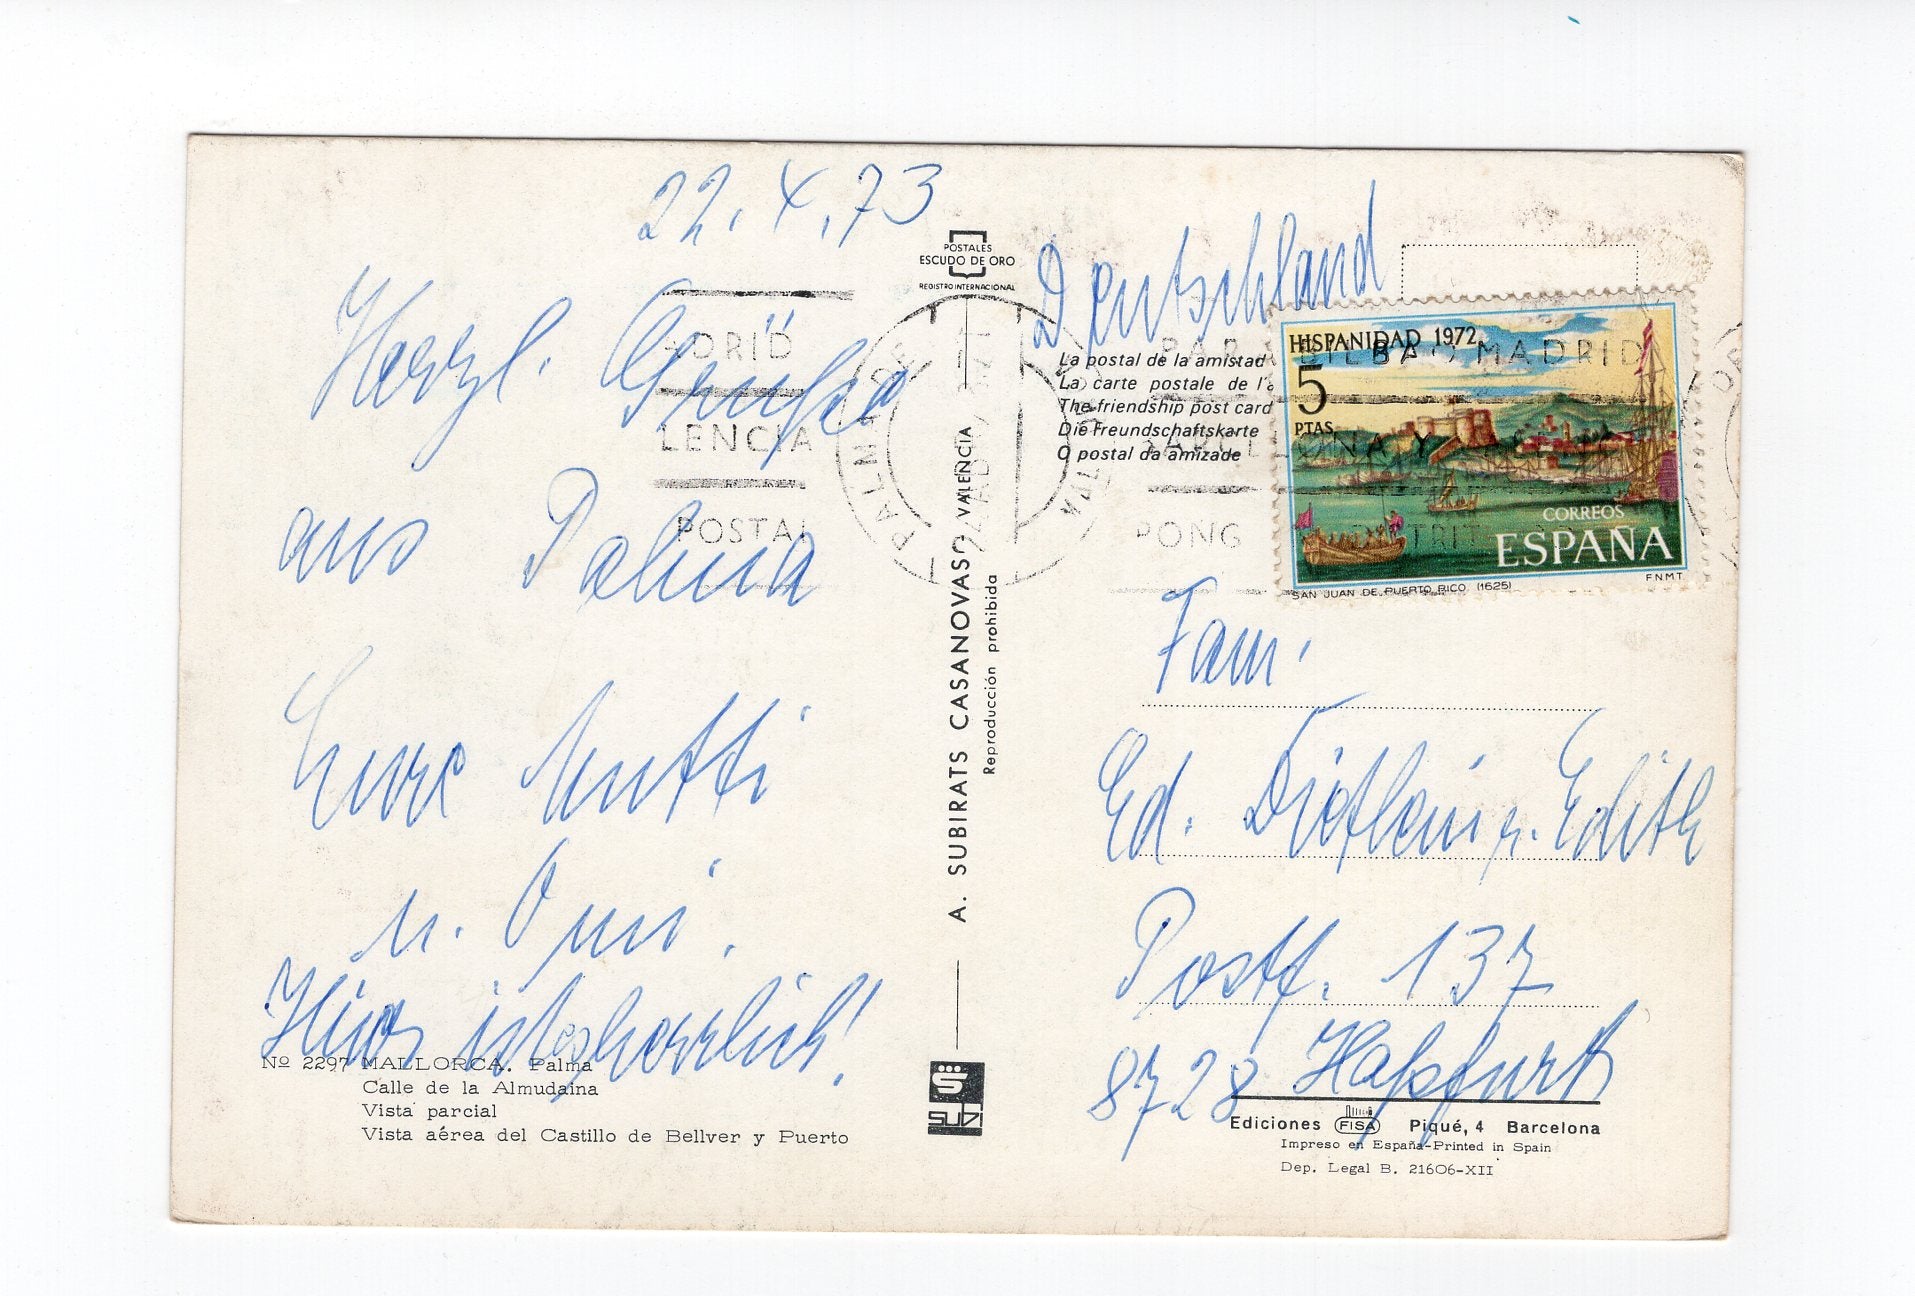 22. 4. 73
Herzl. Grüße
aus Palma
Eure Mutti
u. Omi.
Hier ist es herrlich!
Nº 2297 MALLORCA. Palma
Calle de la Almudaina
Vista parcial
Vista aérea del Castillo de Bellver y Puerto
POSTALES
ESCUDO DE ORO
REGISTRO INTERNACIONAL
A. SUBIRATS CASANOVAS VALENCIA
Reproducción prohibida
SUBI
PALMA DE
LENCIA
POSTAL
Deutschland
La postal de la amistad
La carte postale de l'a
The friendship post card
Die Freundschaftskarte
O postal da amizade
PARA BILBAO, MADRID
PONG DISTRITO
HISPANIDAD 1972
5
PTAS
CORREOS
ESPAÑA
SAN JUAN DE PUERTO RICO (1625)
F.N.M.T.
Fam.
Ed. Dietlein u. Edith
Postf. 137
8728 Haßfurt
Ediciones FISA Piqué, 4 Barcelona
Impreso en España-Printed in Spain
Dep. Legal B. 21606-XII